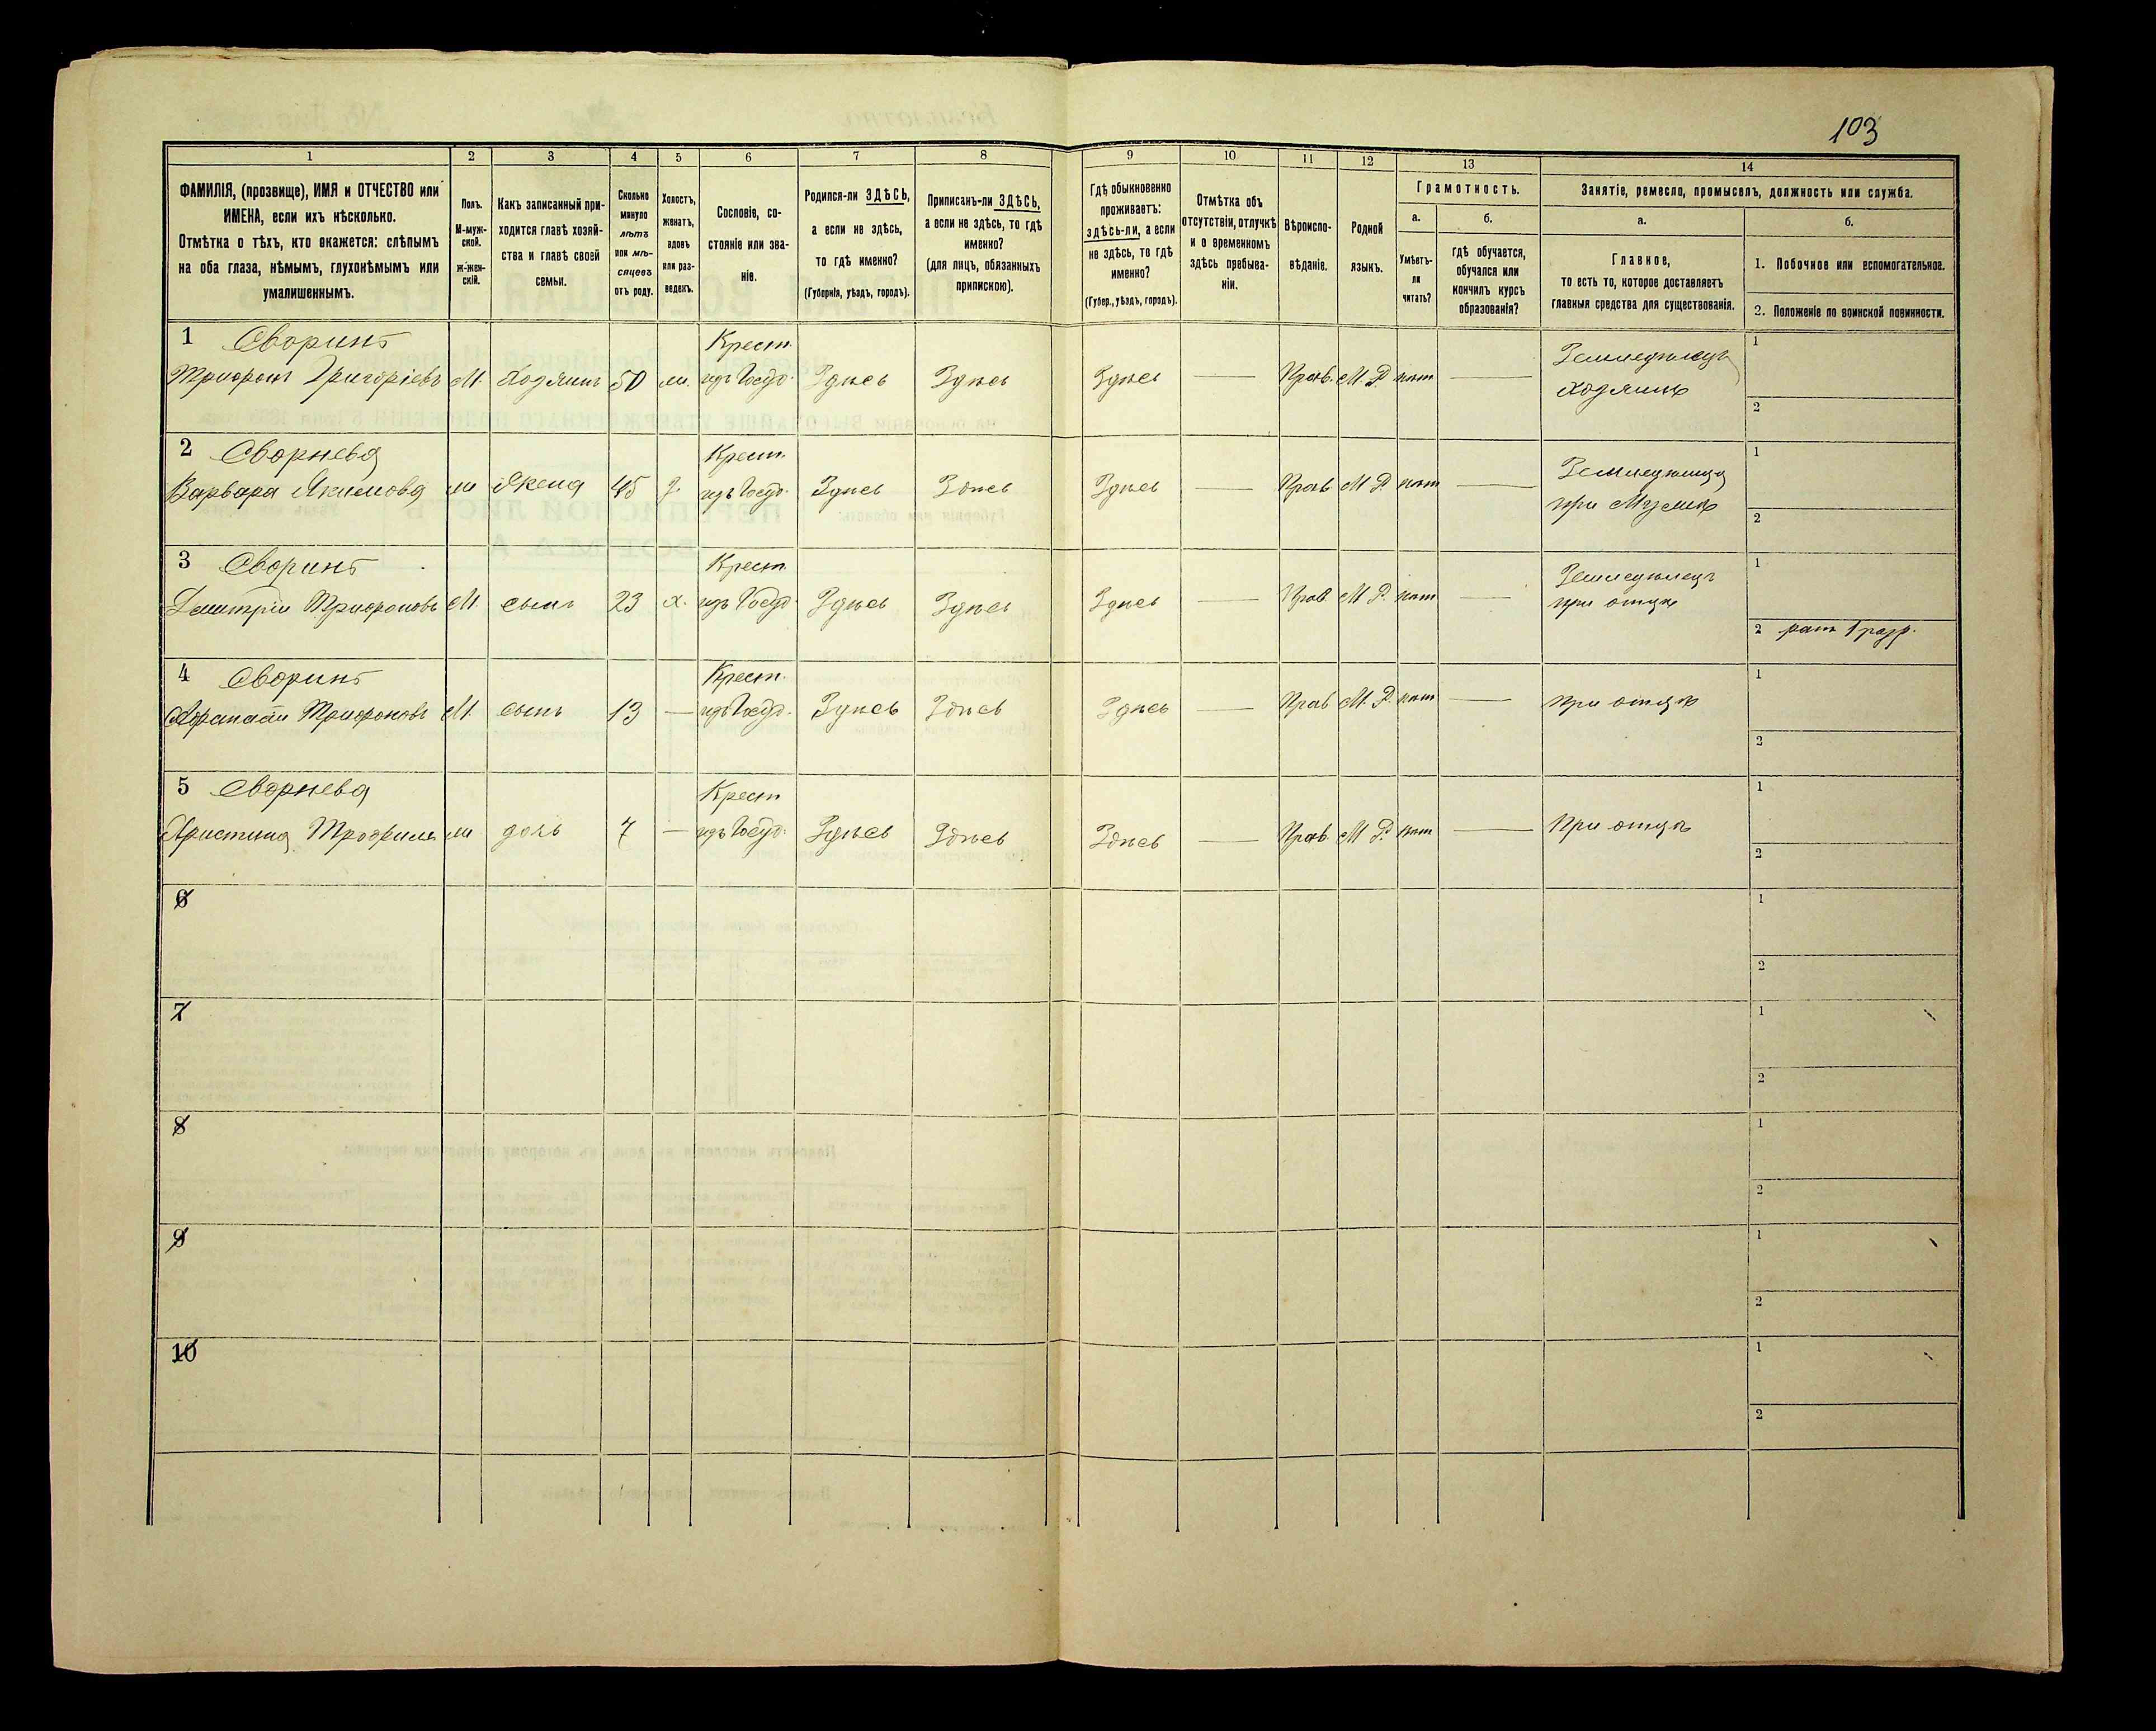 103
1 2 3 4 5 6 7 8 9 10 11 12 13 14
ФАМИЛІЯ, (прозвище), ИМЯ и ОТЧЕСТВО или
ИМЕНА, если ихъ нѣсколько.
Отмѣтка о тѣхъ, кто окажется: слѣпымъ
на оба глаза, нѣмымъ, глухонѣмымъ или
умалишеннымъ.
Полъ.
М-муж-
ской.
ж-жен-
скій.
Какъ записанный при-
ходится главѣ хозяй-
ства и главѣ своей
семьи.
Сколько
минуло
лѣтъ
или мѣ-
сяцевъ
отъ роду.
Холостъ,
женатъ,
вдовъ
или раз-
веденъ.
Сословіе, со-
стояніе или зва-
ніе.
Родился-ли ЗДѢСЬ,
а если не здѣсь,
то гдѣ именно?
(Губернія, уѣздъ, городъ).
Приписанъ-ли ЗДѢСЬ,
а если не здѣсь, то гдѣ
именно?
(для лицъ, обязанныхъ
припискою).
Гдѣ обыкновенно
проживаетъ:
здѣсь-ли, а если
не здѣсь, то гдѣ
именно?
(Губер., уѣздъ, городъ).
Отмѣтка объ
отсутствіи, отлучкѣ
и о временномъ
здѣсь пребыва-
ніи.
Вѣроиспо-
вѣданіе.
Родной
языкъ.
Грамотность.
а.
Умѣетъ-
ли
читать?
б.
гдѣ обучается,
обучался или
кончилъ курсъ
образованія?
Занятіе, ремесло, промыселъ, должность или служба.
а.
Главное,
то есть то, которое доставляетъ
главныя средства для существованія.
б.
1. Побочное или вспомогательное.
2. Положеніе по воинской повинности.
1 Своринъ Крест. Земледѣлецъ 1
Григоріевъ М. Хозяинъ 50 изъ Госуд. Здѣсь Здѣсь Здѣсь — Прав. М. Р. нѣт — хозяинъ
2
2 Сворнева Крест. 1
Варвара Якимова Жена 45 изъ Госуд. Здѣсь Здѣсь Здѣсь — Прав. М. Р. нѣт — при Мужѣ
2
3 Своринъ Крест. Земледѣлецъ 1
Дмитрій Трифоновъ М. сынъ 23 х. изъ Госуд. Здѣсь Здѣсь Здѣсь — Прав. М. Р. нѣт — при отцѣ
2 рат 1 разр.
4 Своринъ Крест. 1
Трифоновъ М. сынъ 13 — изъ Госуд. Здѣсь Здѣсь Здѣсь — Прав. М. Р. нѣт — при отцѣ
2
5 Сворнева Крест 1
Христина дочь 7 — изъ Госуд. Здѣсь Здѣсь Здѣсь — Прав. М. Р. нѣт — При отцѣ
2
6 1
2
7 1
2
8 1
2
9 1
2
10 1
2